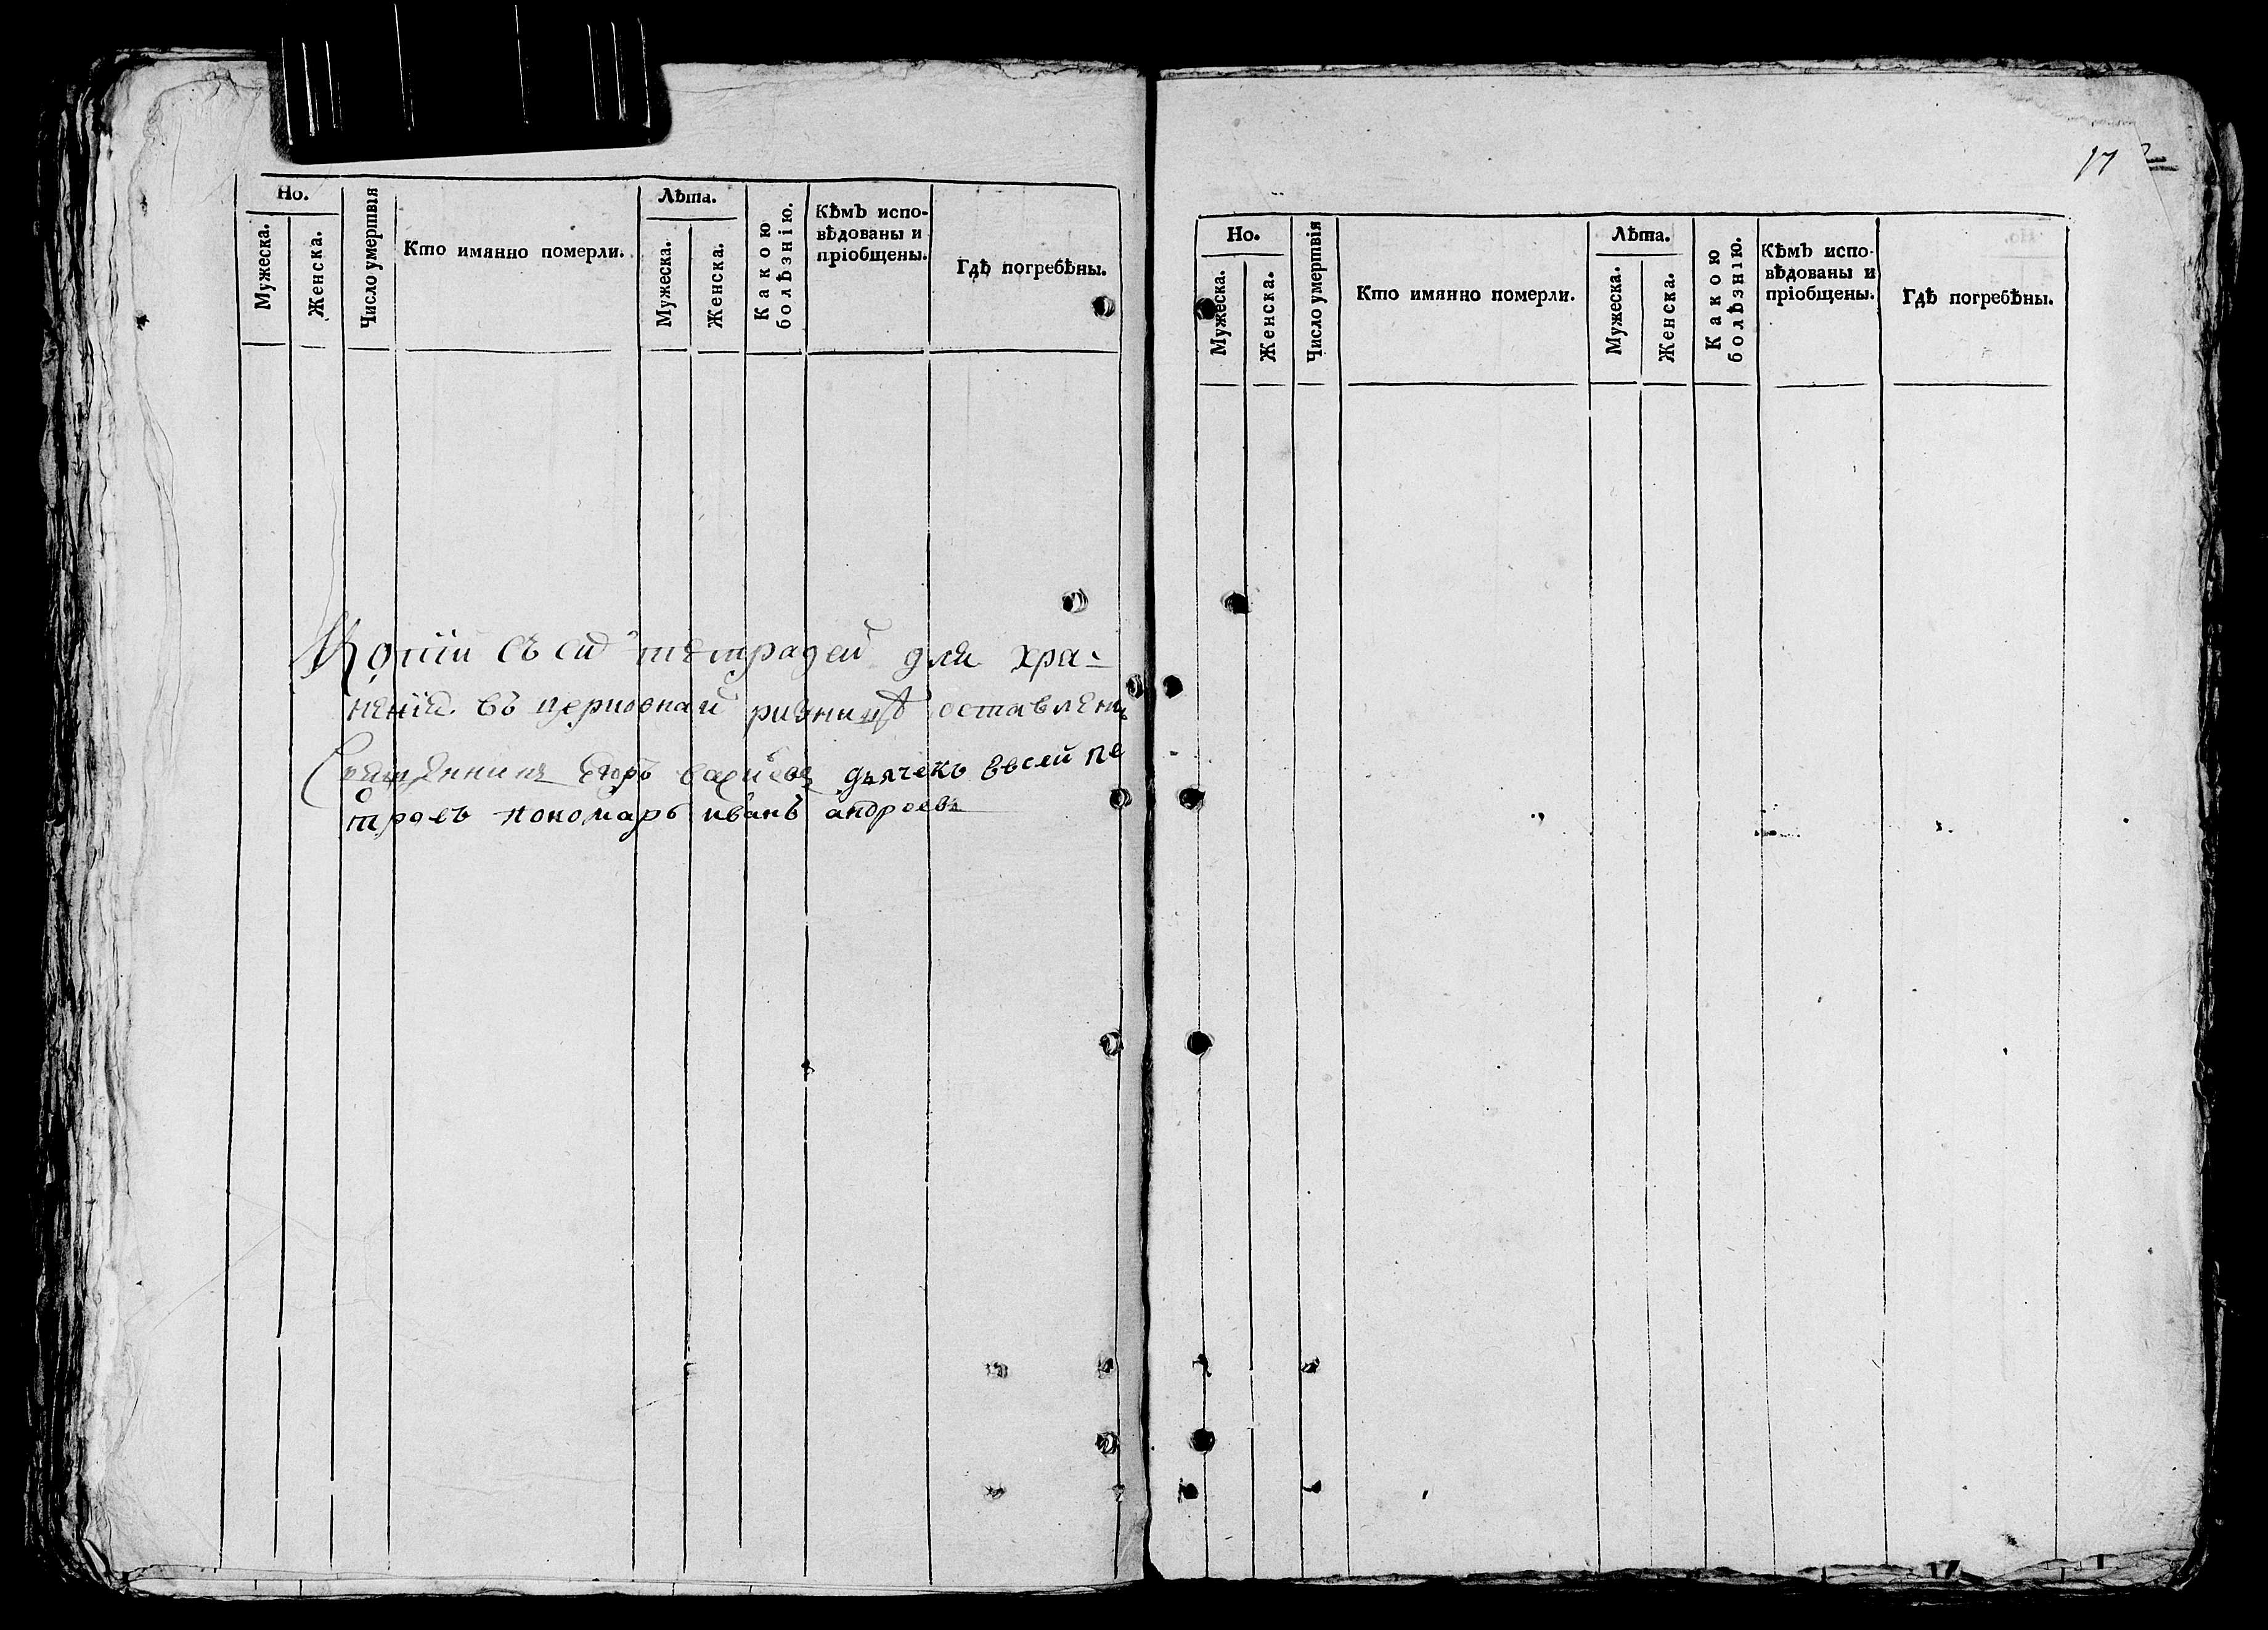 Но.
Мужеска.
Женска.
Число умертвія
Кто имянно померли.
Лѣта.
Мужеска.
Женска.
Какою
болѣзнію.
Кѣмъ испо-
вѣдованы и
пріобщены.
Гдѣ погребѣны.
Копіи съ сих тетрадей для хра-
неніи въ церковнай ризницѣ оставлены
Священникъ дьячекъ
тровъ пономарь иванъ андреевъ
17
Но.
Мужеска.
Женска.
Число умертвія
Кто имянно померли.
Лѣта.
Мужеска.
Женска.
Какою
болѣзнію.
Кѣмъ испо-
вѣдованы и
пріобщены.
Гдѣ погребѣны.